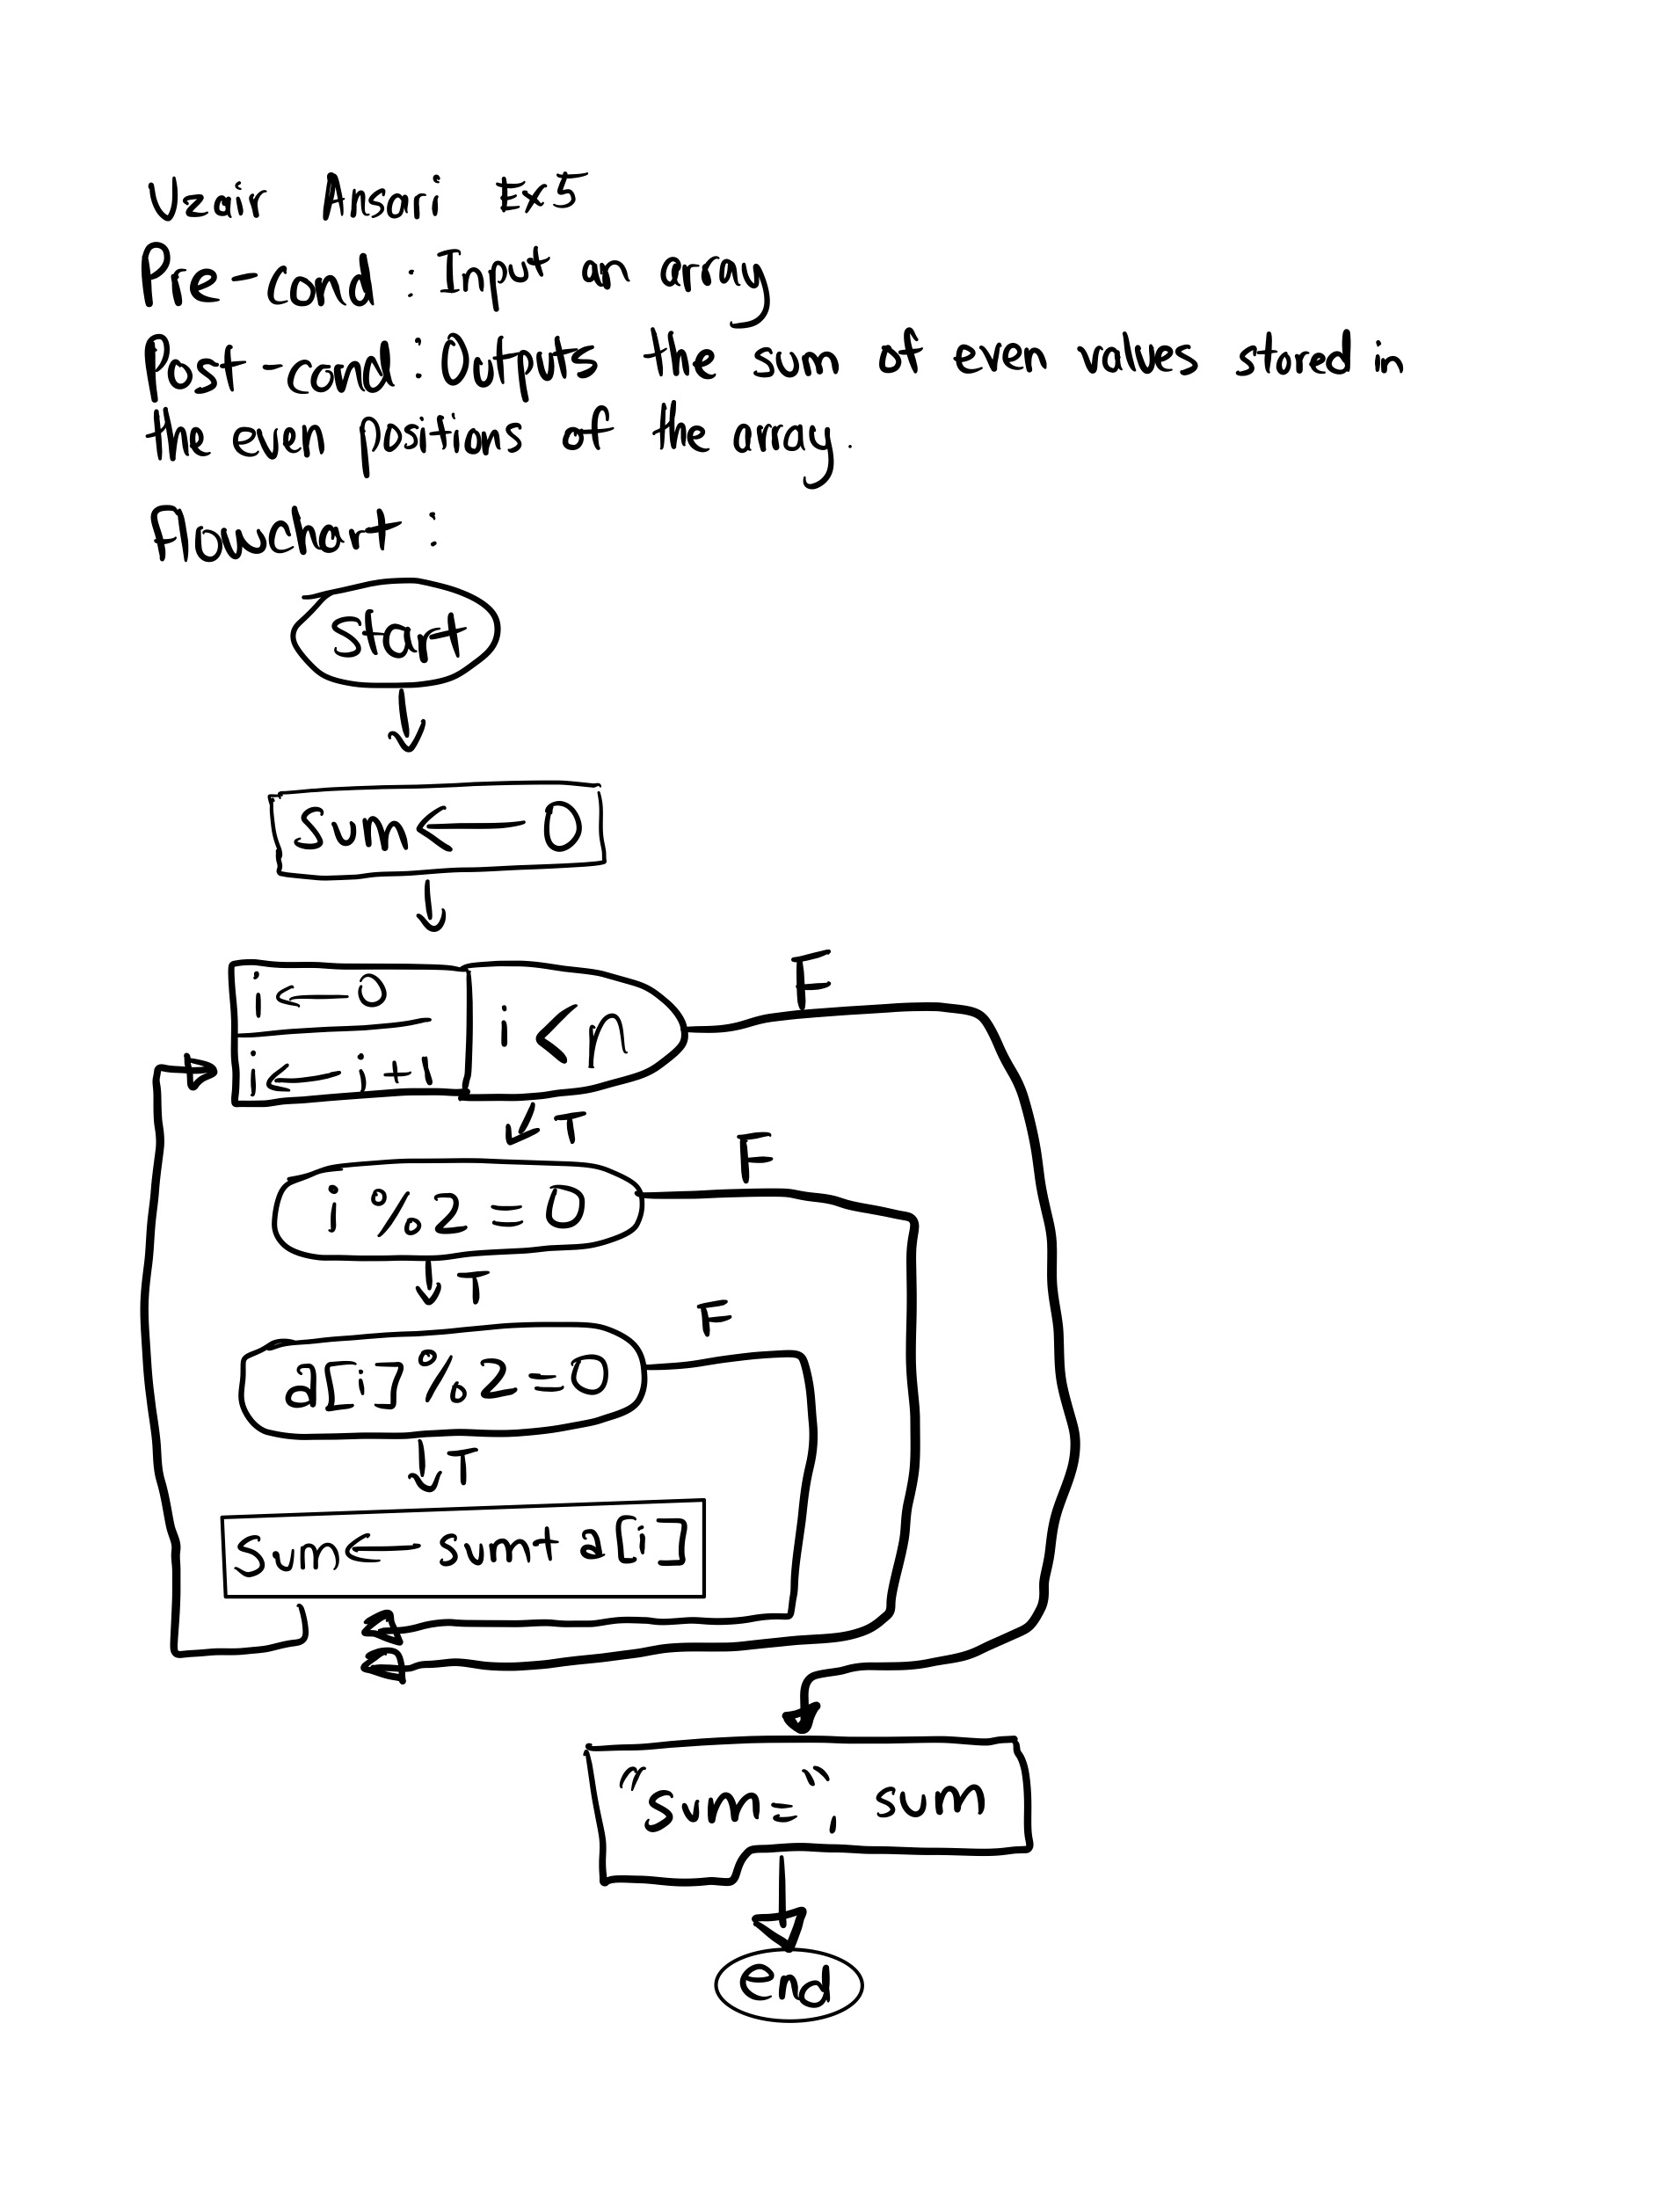 Uzair Ansari Ex5
Pre-cond : Input an array
Post-cond : Outputs the sum of even values stored in
the even positions of the array.
Flowchart :
Start
Sum ← 0
i ← 0
i ← i + 1
i < n
F
T
i % 2 = 0
F
T
a[i] % 2 = 0
F
T
Sum ← sum + a[i]
"sum=", sum
end